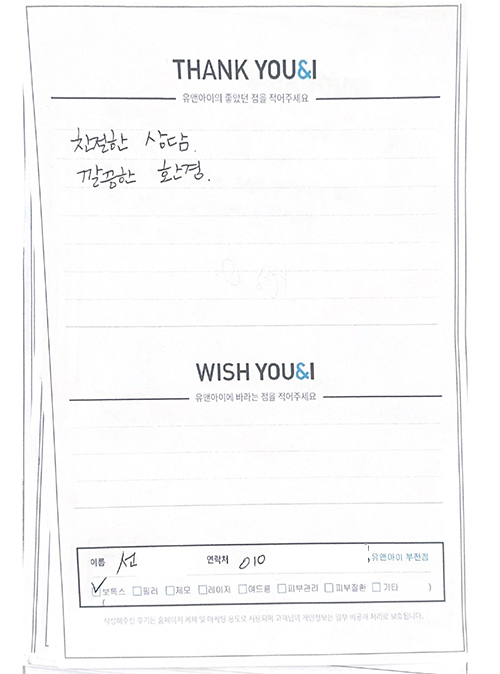 THANK YOU&I
유앤아이의 좋았던 점을 적어주세요
친절한 상담.
깔끔한 환경.
WISH YOU&I
유앤아이에 바라는 점을 적어주세요
이름 선 연락처 010 유앤아이 부전점
보톡스 필러 제모 레이저 여드름 피부관리 피부질환 기타 )
작성해주신 후기는 홈페이지 게재 및 마케팅 용도로 사용되며 고객님의 개인정보는 일부 비공개 처리로 보호됩니다.